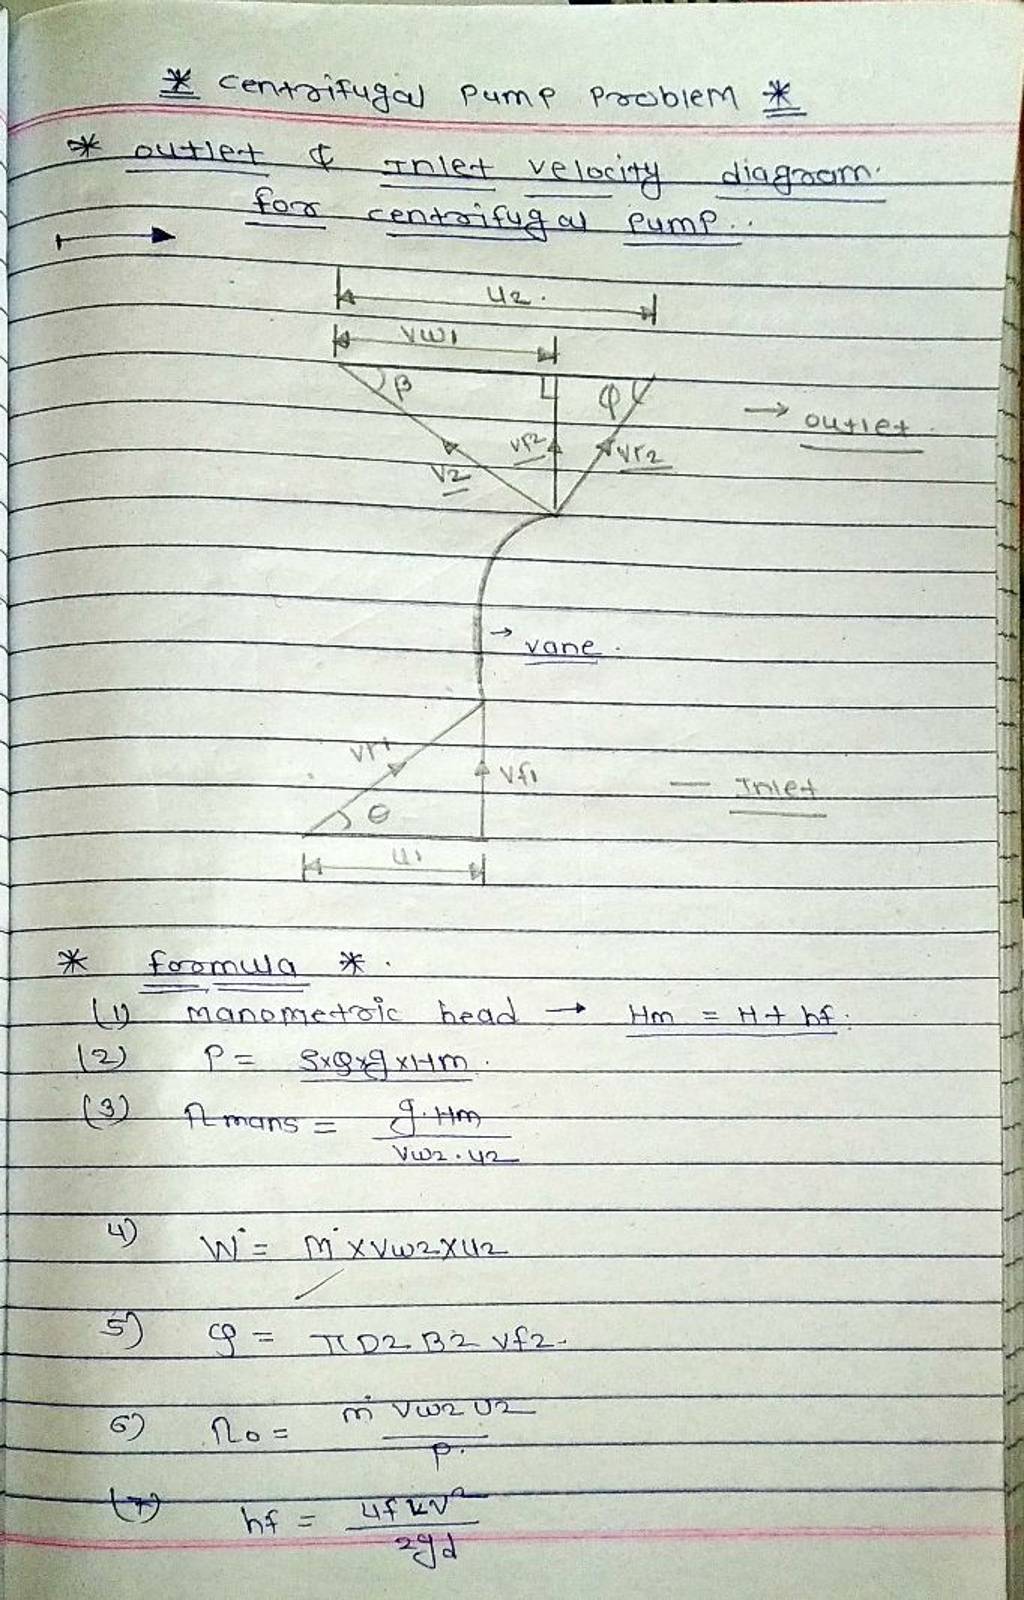 * Centrifugal Pump Problem *
* outlet & Inlet velocity diagram.
for centrifugal pump..
U2.
Vw1
β
φ
→ outlet.
Vf2
Vr2
V2
→ vane.
Vr1
Vf1
— Inlet
θ
U1
* formula *.
(1) manometric head → Hm = H + hf.
(2) P = ρxQxgxHm.
(3) η mans = g.Hm / Vw2.U2
4) Ẇ = ṁ x Vw2 x U2
5) Q = π D2 B2 Vf2.
6) ηo = ṁ Vw2 U2 / P.
(7) hf = 4f LV² / 2gd